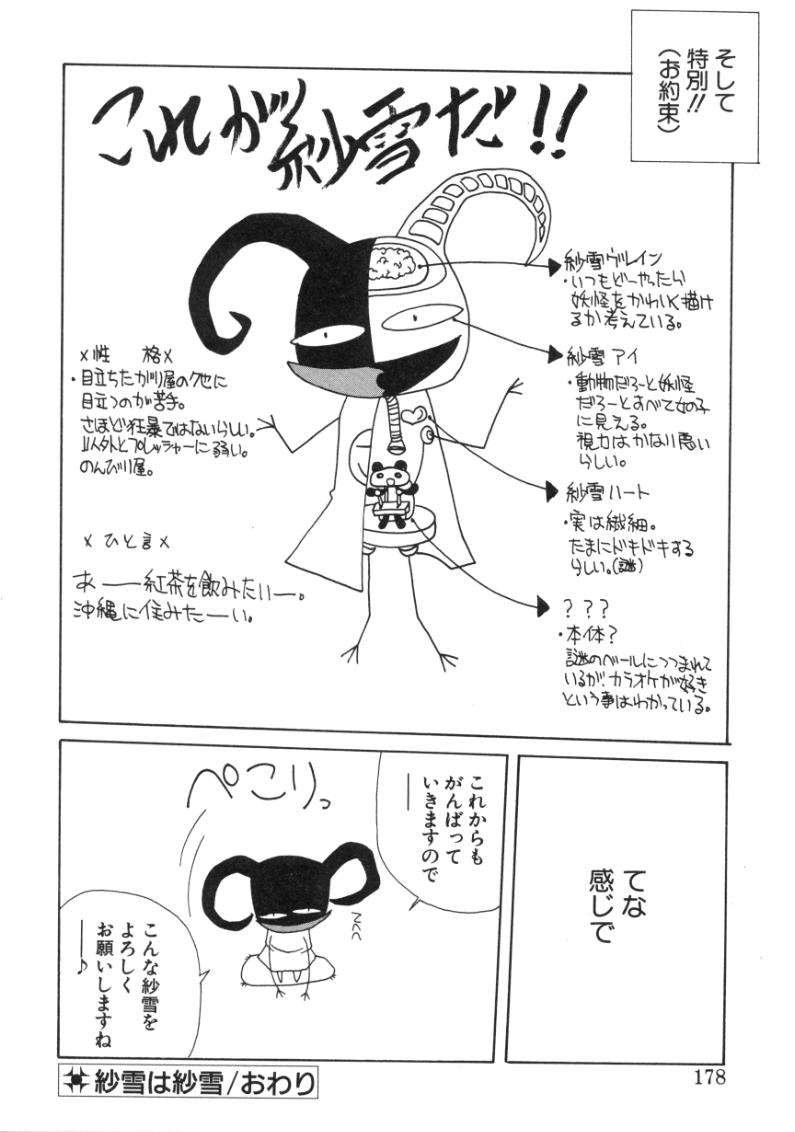 そして
特別!!
(お約束)
これが紗雪だ!!
紗雪ヴレイン
・いつもどーやったら
妖怪をかわいく描け
るか考えている。
紗雪アイ
・動物だろーと妖怪
だろーとすべて女の子
に見える。
視力はかなり悪い
らしい。
紗雪ハート
・実は繊細。
たまにドキドキする
らしい。(謎)
???
・本体?
謎のベールにつつまれて
いるが、カラオケが好き
という事はわかっている。
×性 格×
・目立ちたがり屋のクセに
目立つのが苦手。
さほど狂暴ではないらしい。
以外とプレッシャーに弱い。
のんびり屋。
×ひと言×
あ――紅茶を飲みたいー。
沖縄に住みたーい。
てな
感じで
これからも
がんばって
いきますので
――
ぺこりっ
こんな紗雪を
よろしく
お願いしますね
――♪
紗雪は紗雪/おわり
178